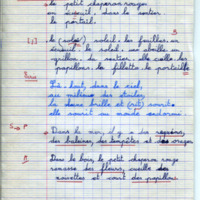 le petit chaperon rouge
un écureuil, dans le sentier
le portail.
[j] le (soleil) soleil, les feuilles, un
écureuil, le soleil, une abeille, un
grillon, du sentier, elle cueille les
papillons, la fillette, le portail
Là-haut, dans le ciel,
au milieu des étoiles,
la lune brille et (rit) sourit
elle sourit au monde endormi
S → P Dans la mer, il y a des requins,
des baleines, des tempêtes et des orages
Dans le bois, le petit chaperon rouge
ramasse des fleurs, cueille des
noisettes et court des papillons